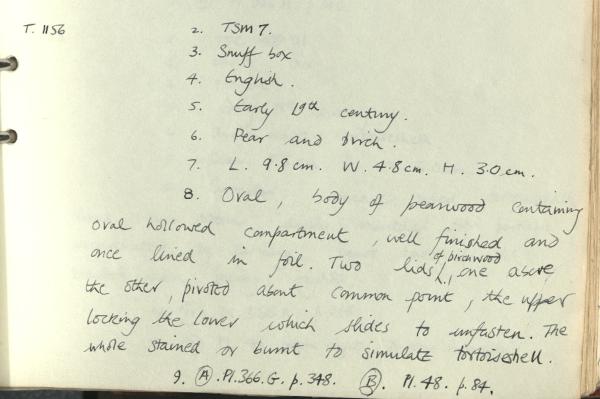 T. 1156 2. TSM 7.
3. Snuff box
4. English.
5. Early 19th century.
6. Pear and birch.
7. L. 9.8 cm. W. 4.8 cm. H. 3.0 cm.
8. Oval, body of pearwood containing
oval hollowed compartment, well finished and
once lined in foil. Two lids of birchwood, one above
the other, pivoted about common point, the upper
locking the lower which slides to unfasten. The
whole stained or burnt to simulate tortoiseshell.
9. A. Pl.366.G. p.348. B. Pl.48. p.84.